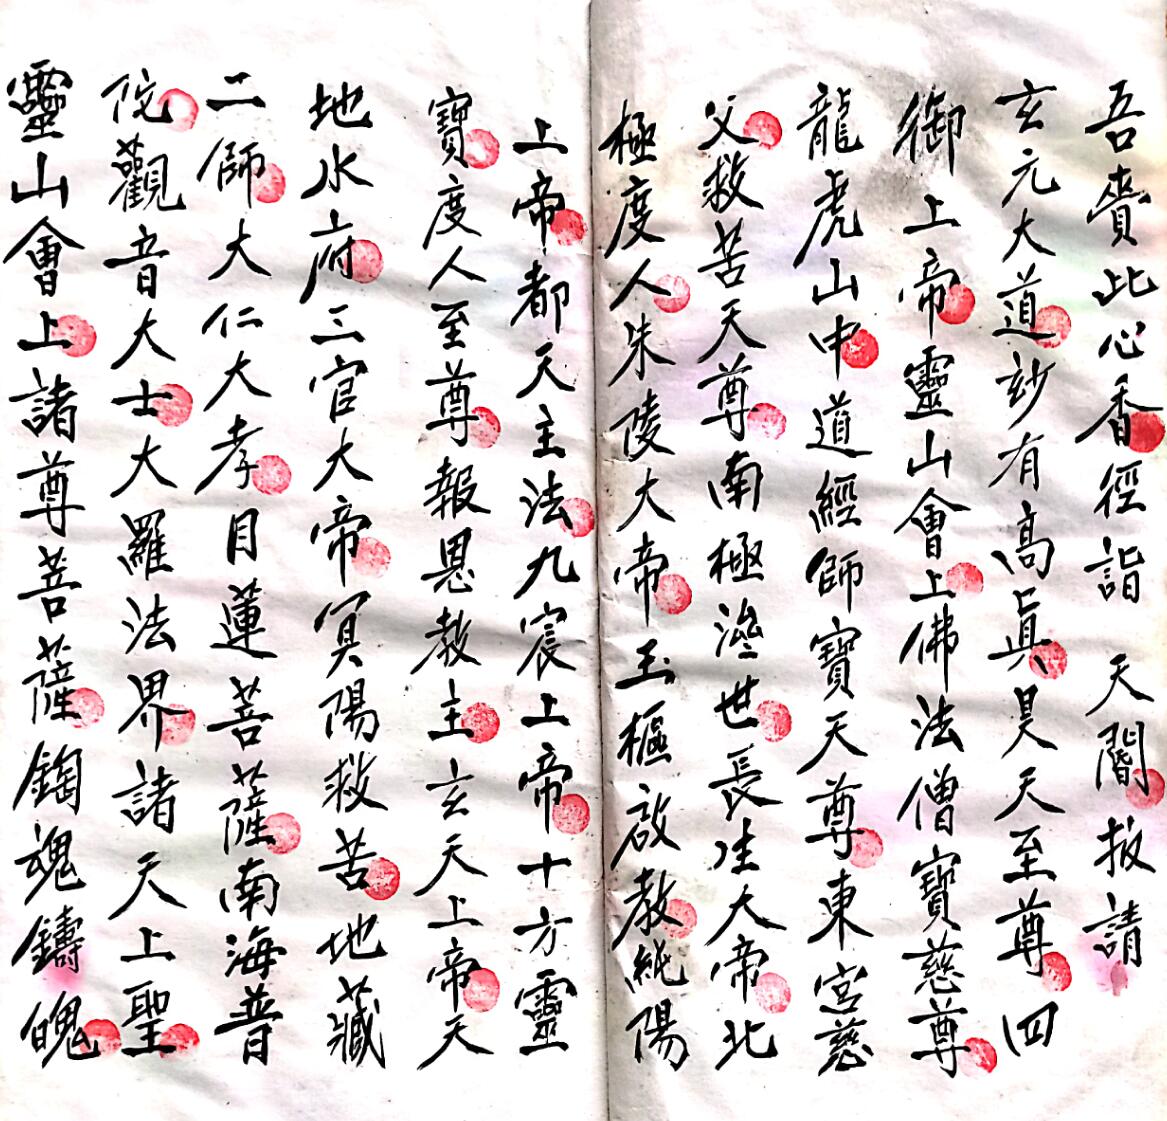 吾賫此心香徑詣　天閽披請
玄元大道玅有高真昊天至尊四
御上帝靈山會上佛法僧寶慈尊
龍虎山中道經師寶天尊東宮慈
父救苦天尊南極濟世長生大帝北
極度人朱陵大帝玉樞啟教純陽
上帝都天主法九宸上帝十方靈
寶度人至尊報恩教主玄天上帝天
地水府三官大帝冥陽救苦地藏
二師大仁大孝目蓮菩薩南海普
佗觀音大士大羅法界諸天上聖
靈山會上諸尊菩薩鍧魂鑄魄